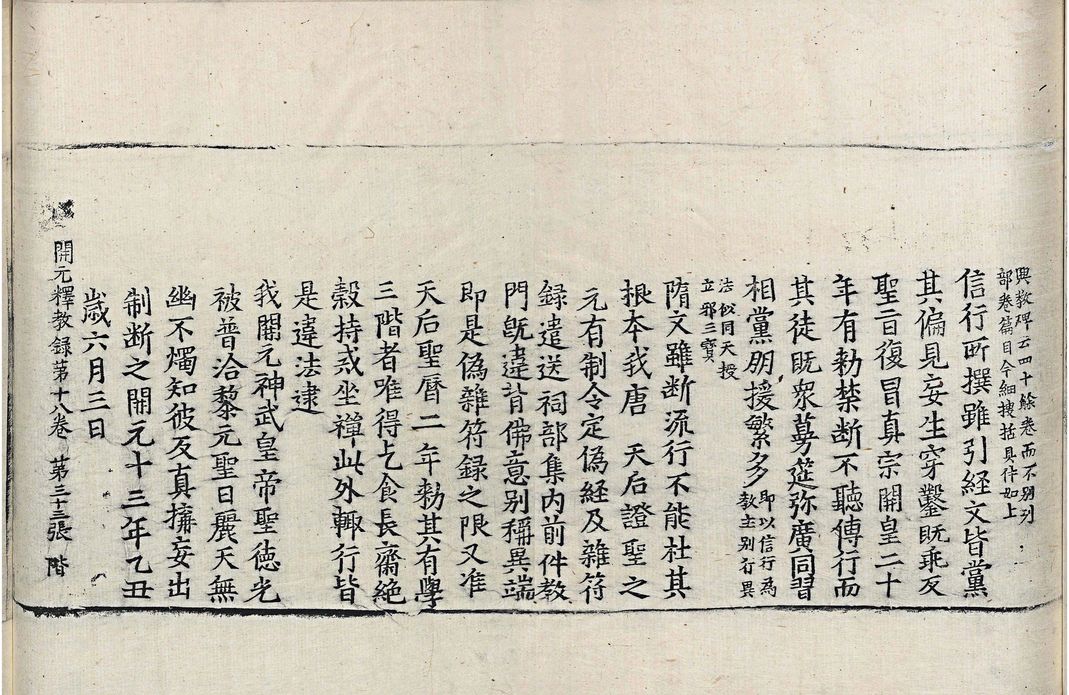 興教碑云四十餘卷而不別列
部卷篇目今細搜括具件如上
信行所撰雖引経文皆黨
其偏見妄生穿鑿既乖反
聖旨復冒真宗開皇二十
年有勑禁断不聽傳行而
其徒既衆蔓莚弥廣同習
相黨朋援繁多即以信行為
教主別行異
法似同天授
立邪三寶
隋文雖断流行不能杜其
根本我唐 天后證聖之
元有制令定偽経及雜符
録遣送祠部集内前件教
門既違背佛意别稱異端
即是偽雜符録之限又准
天后聖暦二年勑其有學
三階者唯得乞食長齋絶
穀持戒坐禪此外輙行皆
是違法逮
我開元神武皇帝聖徳光
被普洽黎元聖日麗天無
幽不燭知彼反真擁妄出
制断之開元十三年乙丑
歳六月三日
開元釋教録苐十八卷 苐三十三張 階